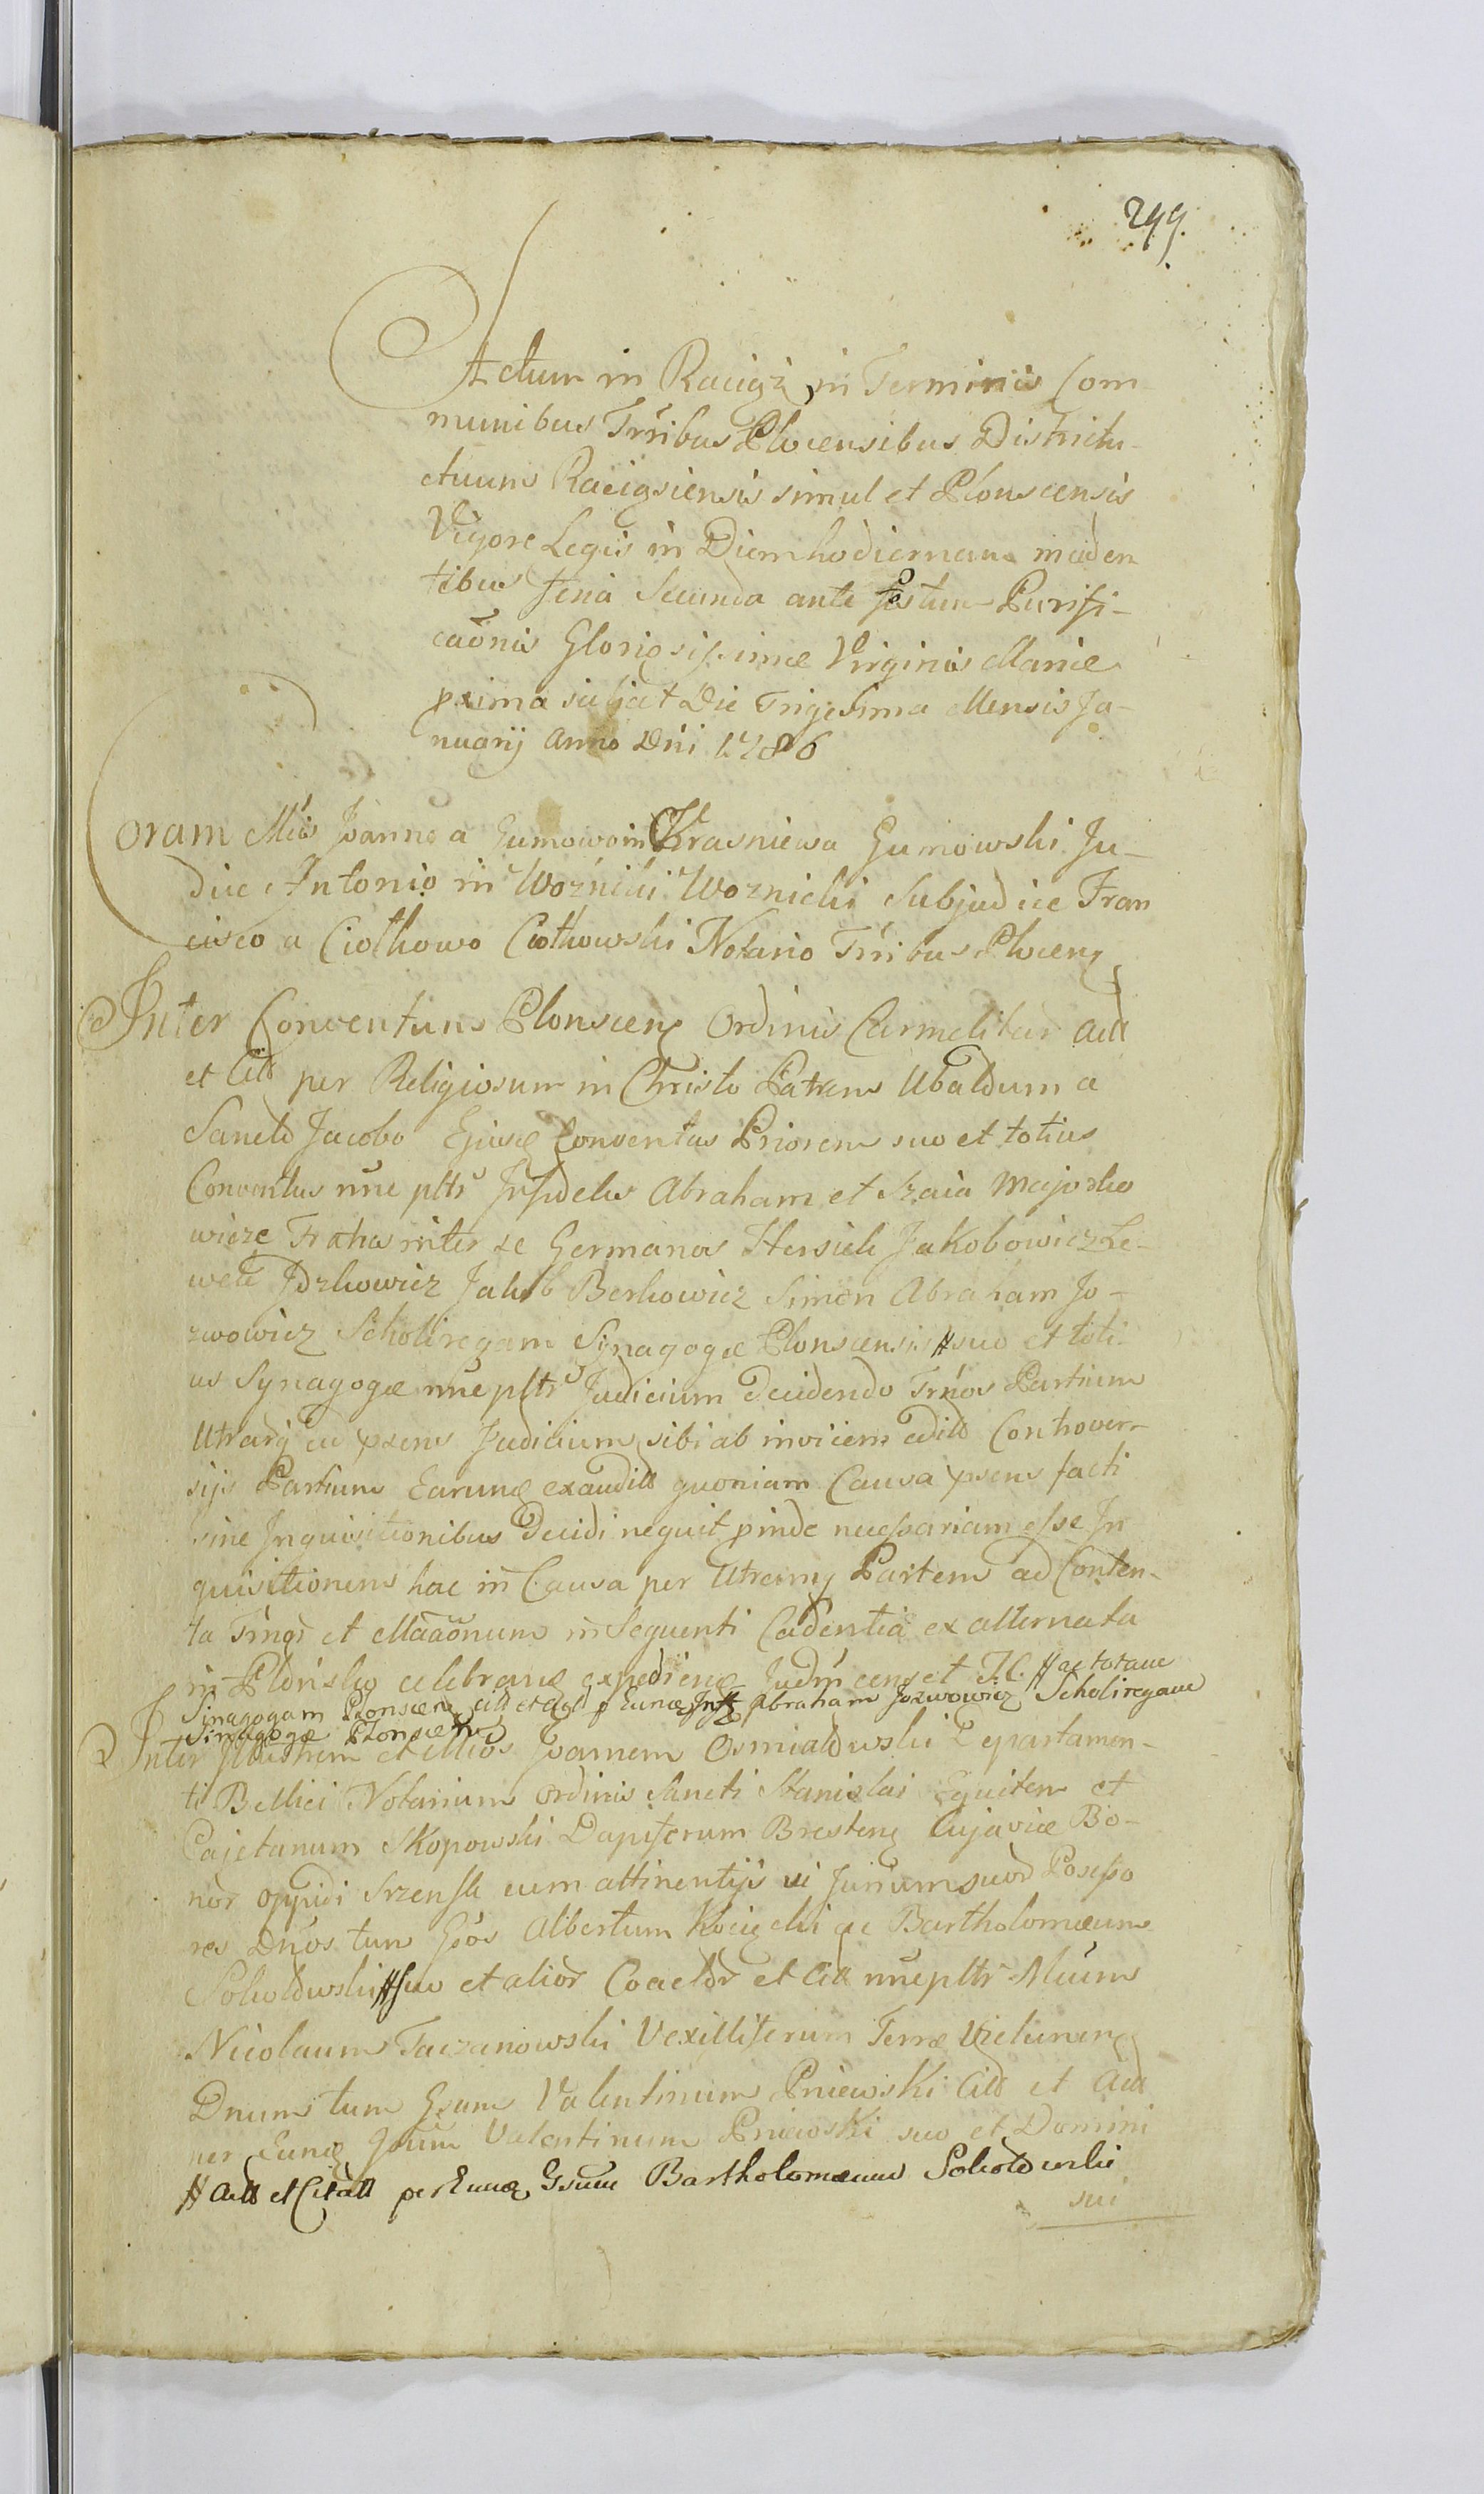 299.
Actum in Raciąż in Terminis Com
munibus Trribus Plocensibus Districtu
ctuum Raciąsiensis simul et Plonscensis
Vigore Legis in Diem hodiernam inciden
tibus feria Secunda ante festum Purifi-
caõnis Gloriosissimæ Virginis Mariæ
pxima scilicet Die Trigesima Mensis Ja-
nuarij Anno Dni 1786
Coram Mcis Joanne a Gumowo in Krasniewa Gumowski Ju-
dice Antonio in Woźniki Woznicki Subjudice Fran
cisco a Ciołkowo Ciołkowski Notario Trribus Plocen
Inter Conventum Plonscen Ordinis Carmelitar Act
et Citt per Religiosum in Christo Patrem Ubaldum a
Sancto Jacobo Ejusq Conventus Priorem suo et totius
Conventus nne pltt Infideles Abraham et Szaia Majorko
wicze Fratres inter se Germanos Hersiek Jakobowicz Le-
wek Jozkowicz Jakób Berkowicz Simon Abraham Jo-
zwowicz Scholiregam Synagogæ Plonscensis # suo et toti
us Synagogæ nne pltt Judicium decidendo Trnos Partium
Utrarq ad pxens Judicium sibi ab invicem edit Controver-
sijs Partium Earunq exaudit quoniam Causa pxens facti
sine Inquisitionibus decidi nequit pinde necessariam esse In
quisitionem hac in Causa per Utramq Partem ad Conten-
ta Trngi et Maãonum in Sequenti Cadentia ex alternata
in Plońsko celebranq expedienq Judm censet J.C. # ac totam
Sinagogam Plonscen citt et act p Eunq Inf Abraham Jozwowicz Scholiregam
Sinagogæ Plonscen
2 Inter Illustrem et Mcos Joannem Osmiałowski Departamen-
ti Bellici Notarium Ordinis Sancti Stanislai Equitem et
Cajetanum Skopowski Dapiferum Bresten Cujaviæ Bo-
nor Oppidi Szrensk cum attinentijs vi Jurium suor Possesso
res Dnos tum Gsos Albertum Kocięcki ac Bartholomæum
Sokołowski # suo et alior Coactor et Citt nne pltt Mcum
Nicolaum Taczanowski Vexilliferum Terræ Vielunen
Dnum tum Gsum Valentinum Pniewski Citt et Act
per Eunq Gsum Valentinum Pniewski suo et Domini
# Act et Citatt per Eunq Gsum Bartholomæum Sokołowski
sui